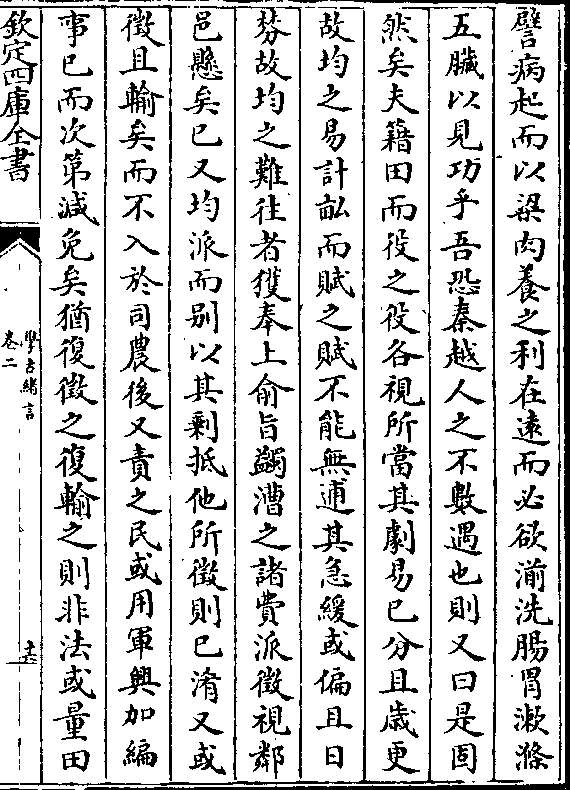 譬病起而以粱肉養之利在遠而必欲湔洗腸胃漱滌
五臟以見功乎吾恐秦越人之不數遇也則又曰是固
然矣夫籍田而役之役各視所當其劇易已分且歲更
故均之易計畝而賦之賦不能無逋其急緩或偏且日
棼故均之難往者獲奉上俞旨蠲漕之諸費派徵視鄰
邑懸矣已又均派而别以其剩抵他所徵則已淆又或
徵且輸矣而不入於司農後又責之民或用軍興加編
事已而次第減免矣猶復徵之復輸之則非法或量田
欽定四庫全書
學古緒言
卷二
十六